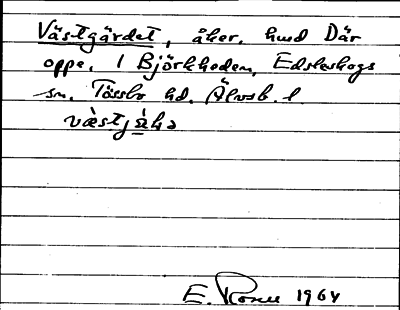 Västgärdet, åker. hmd Där
oppe. 1 Björkheden, Edsleskogs
sn. Tössbo hd. Älvsb. l
E. 1964